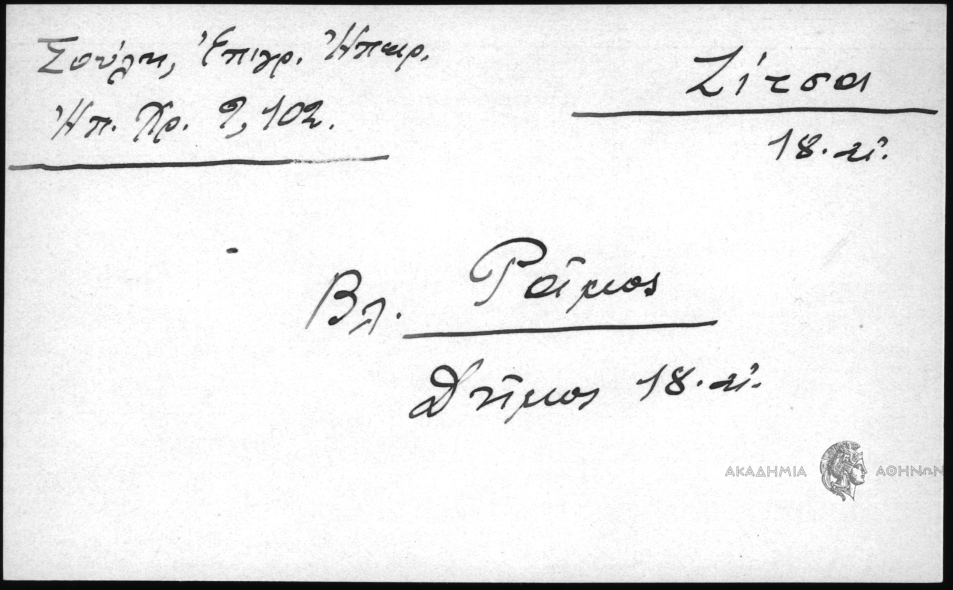 Σούλη, Ἐπιγρ. Ἠπειρ.
Ἠπ. Χρ. 9, 102.
Ζίτσα
18. αἰ.
Βλ. Ῥᾶμος
Δῆμος 18. αἰ.
ΑΚΑΔΗΜΙΑ ΑΘΗΝΩΝ